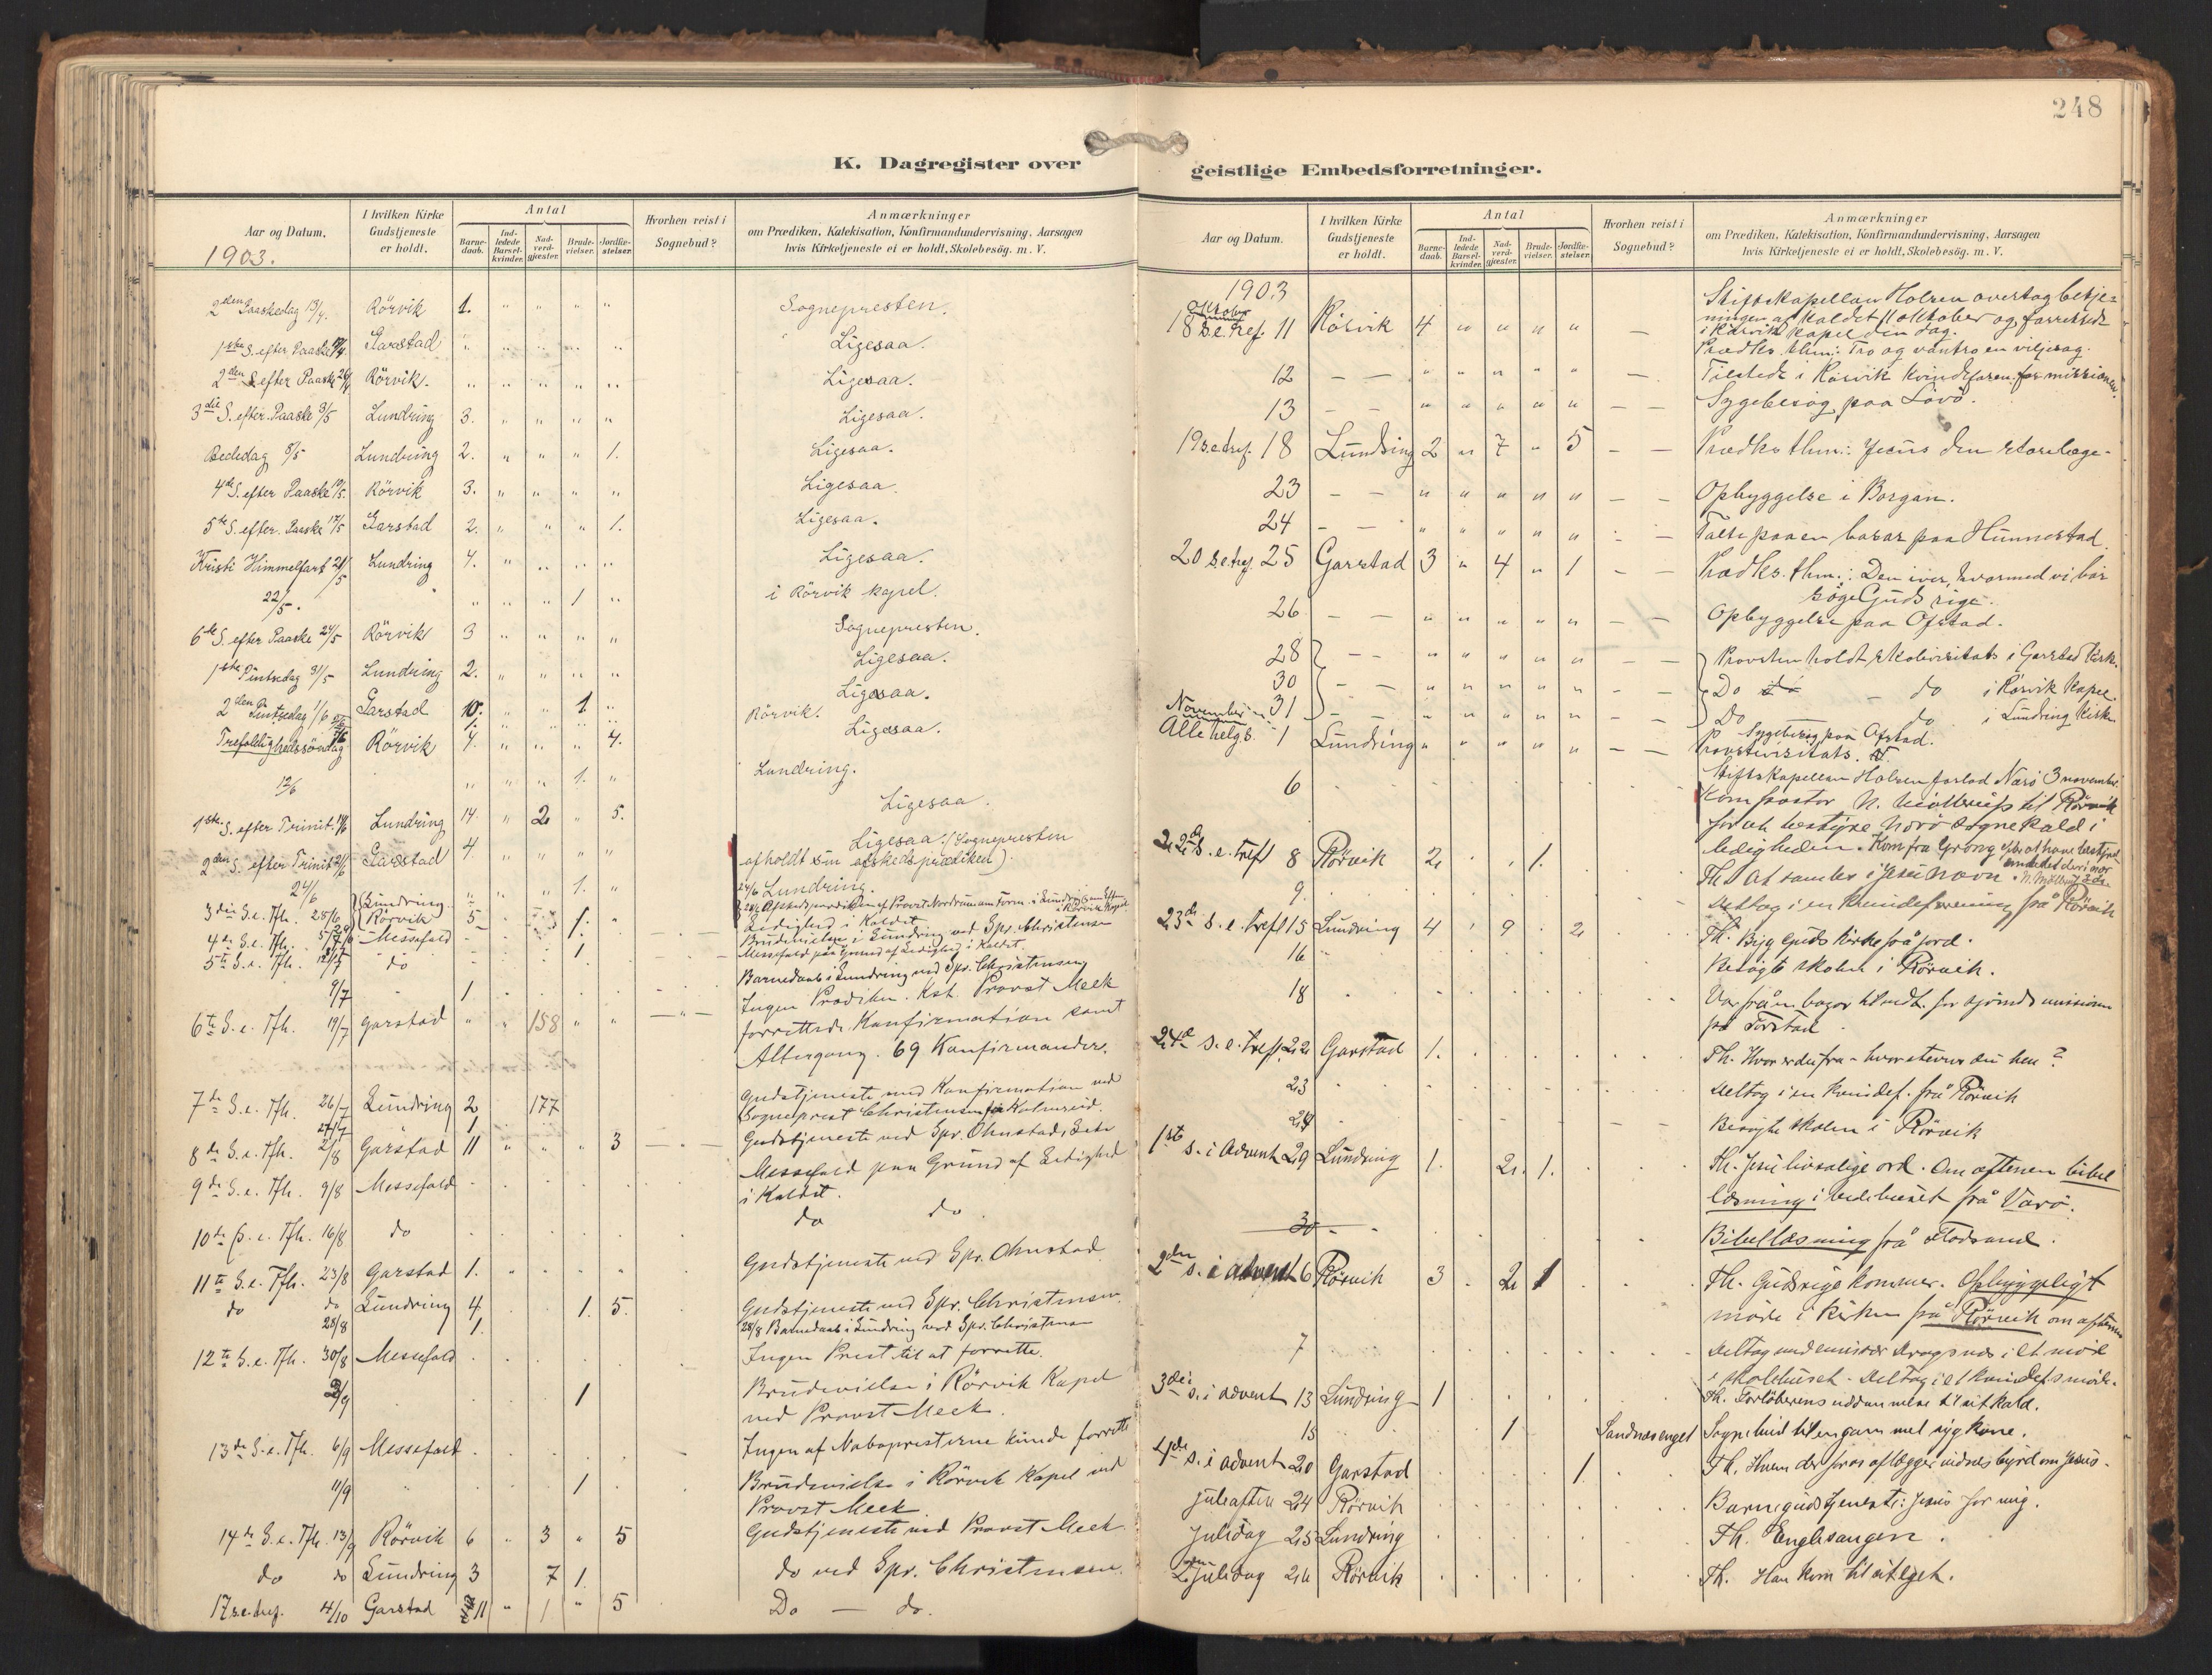 248
K. Dagregister over geistlige Embedsforretninger.
Aar og Datum.
I hvilken Kirke Gudstjeneste er holdt.
Antal
Barnedaab.
Indledede Barselkvinder.
Nadverdgjæster.
Brudevielser.
Jordfæstelser.
Hvorhen reist i Sognebud?
Anmærkninger
om Prædiken, Katekisation, Konfirmandundervisning, Aarsagen
hvis Kirketjeneste ei er holdt, Skolebesög. m. V.
1903.
2den Paaskedag 13/4. Rörvik 1. " " " " Sognepresten.
1ste S. efter Paaske 19/4 Garstad " " " " " Ligesaa.
2den S. efter Paaske 26/4 Rörvik. " " " " " Ligesaa.
3die S. efter Paaske 3/5 Lundring 3. " " " " Ligesaa.
Bededag 8/5 Lundring 2. " " " 1. Ligesaa.
4de S. efter Paaske 10/5. Rörvik 3. " " " " Ligesaa.
5te S. efter Paaske 17/5 Garstad 2. " " " 1. Ligesaa.
Kristi Himmelfart 21/5 Lundring 4. " " " " Ligesaa.
22/5. " " " " 1 " i Rörvik kapel.
6te S. efter Paaske 24/5 Rörvik 3 " " " " Sognepresten.
1ste Pintsedag 31/5 Lundring 2. " " " " Ligesaa.
2den Pintsedag 1/6 Garstad 10. " " 1 " Ligesaa.
Rörvik.
Trefoldighedssöndag 7/6 Rörvik 4. " " " 4. Ligesaa.
12/6 " " " 1. " Lundring.
1ste S. efter Trinit. 14/6 Lundring 14. " 2 " 5. Ligesaa.
2den S. efter Trinit. 21/6 Garstad 4. " " " " Ligesaa. (Sognepresten
afholdt sin afskedsprædiken).
24/6 " " " 1. " 24/6 Lundring.
3die S. e. Tfh. 28/6 Lundring Rörvik 5 28/6 Afskedsprædiken af Provst Nordrum om Form. i Lundring om Eftm. i Rörvik Kapel
4de S. e. Tfh. 5/7 Messefald Ledighed i Kaldet.
Brudevielse i Lundring ved Spr. Christensen
5te S. e. Tfh. 12/7 do 1 Messefald paa Grund af Ledighed i Kaldet.
9/7 1 Barnedaab i Lundring ved Spr. Christensen
6te S. e. Tfh. 19/7 Garstad " " 158 " " Ingen Prædiken. Kst. Provst Meek
forrettede Konfirmation samt
Altergang. 69 Konfirmander.
7de S. e. Tfh. 26/7 Lundring 2 177 Gudstjeneste med Konfirmation ved
27/7 1 Sogneprest Christensen fra Kolvereid.
8de S. e. Tfh. 2/8 Garstad 11 " " " 3 Gudstjeneste ved Spr. Ohnstad, Leke
9de S. e. Tfh. 9/8 Messefald Messefald paa Grund af Ledighed
i Kaldet.
10de S. e. Tfh. 16/8 do do do
11te S. e. Tfh. 23/8 Garstad 1. Gudstjeneste ved Spr. Ohnstad
do do Lundring 4 1. 5. Gudstjeneste ved Spr. Christensen.
28/8 1. 28/8 Barnedaab i Lundring ved Spr. Christensen
12te S. e. Tfh. 30/8 Messefald Ingen Prest til at forrette.
2/9 1 Brudevielse i Rörvik Kapel
ved Provst Meek.
13de S. e. Tfh. 6/9 Messefald Ingen af Nabopresterne kunde forrette
11/9 1 Brudevielse i Rörvik Kapel ved
Provst Meek
14de S. e. Tfh. 13/9 Rörvik 6 3 " 5 Gudstjeneste ved Provst Meek
do do Lundring 3 7 1. do ved Spr. Christensen.
17 s.e.tref. 4/10 Garstad 11 " 1 " 5 Do — do.
Aar og Datum.
I hvilken Kirke Gudstjeneste er holdt.
Antal
Barnedaab.
Indledede Barselkvinder.
Nadverdgjæster.
Brudevielser.
Jordfæstelser.
Hvorhen reist i Sognebud?
Anmærkninger
om Prædiken, Katekisation, Konfirmandundervisning, Aarsagen
hvis Kirketjeneste ei er holdt, Skolebesög. m. V.
1903
Oktober
18 s.e.tref. 11 Rörvik 4 " " " " — Stiftskapellan Holsen overtog betje-
ningen af Kaldet 11 oktober og forrettede
i Rörvik Kapel den dag.
Prædks. thm: Tro og vantro en viljesag.
12 — — " " " " " — Tilstede i Rörvik kvindeforen. for missionen.
13 — — " " " " " — — Sygebesög paa Lövö.
19 s.e.tref. 18 Lundring 2 " 7 " 5 — — Prædks thm: Jesus den store læge.
23 — — " " " " " — — Opbyggelse i Borgan.
24 — — " " " " " — — Talte paa en basar paa Hunnestad
20 s.e.tref. 25 Garstad 3 " 4 " 1 — — Prædks. thm: Den iver, hvormed vi bör
söge Guds rige.
26 — — " " " " " — — Opbyggelse paa Ofstad.
28 — — " " " " " — — Provsten holdt skolevisitats i Garstad Kirk.
30 — — " " " " " — — Do — do i Rörvik Kapel.
31 — — " " " " " — — Do do i Lundring Kirke
November
Alle helg. s. 1 Lundring " " " " " — — Sygebesög paa Ofstad.
Provstevisitats.
6 Stiftskapellan Holsen forlod Nærö 3 november.
Kom pastor N. til Rörvik
for at bestyre Nærö sognekald i
ledigheden. Kom fra Grong efter at have bestyret
embedet der
22de S. e. tref 8 Rörvik 2 1. Th. At samles i Jesu navn.
9. Deltog i en kvindeforening på Rörvik
23de S. e. tref 15 Lundring 4 9 2 Th. Byg Guds kirke på jord.
16 Besögte skolen i Rörvik.
18 Var på en bazar til indt. for sjömandsmissionen
på Torstad
24de S. e. tref. 22 Garstad 1. Th. Hvor er du fra - hvor stevner du hen?
23 Deltog i en kvindef. på Rörvik
24 Besögte skolen i Rörvik
1ste s. i Advent 29 Lundring 1. 2. 1. Th. Jesu livsalige ord. Om aftenen bibel
læsning i bedehuset på Værö.
30 Bibellæsning på Flodsand.
2den s. i advent 6 Rörvik 3 2 1 Th. Guds rige kommer. Opbyggeligt
möde i kirken på Rörvik om aftenen
7 Deltog med emissær Dragsnes i et möde
i skolehuset. Deltog i et kvindefs möde.
3die s. i advent 13 Lundring 1 Th. Forlöberens uddannelse til sit kald.
15 1 Sandnesenget Sognebud til en gammel syg kone.
4de s. i advent 20 Garstad 1. Th. Hvem der for os aflægger vidnesbyrd om Jesus.
juleaften 24 Rörvik Barnegudstjeneste: Jesus for mig.
Juledag 25 Lundring Th. Englesangen.
2den Juledag 26 Rörvik Th. Han kom til sit eget.